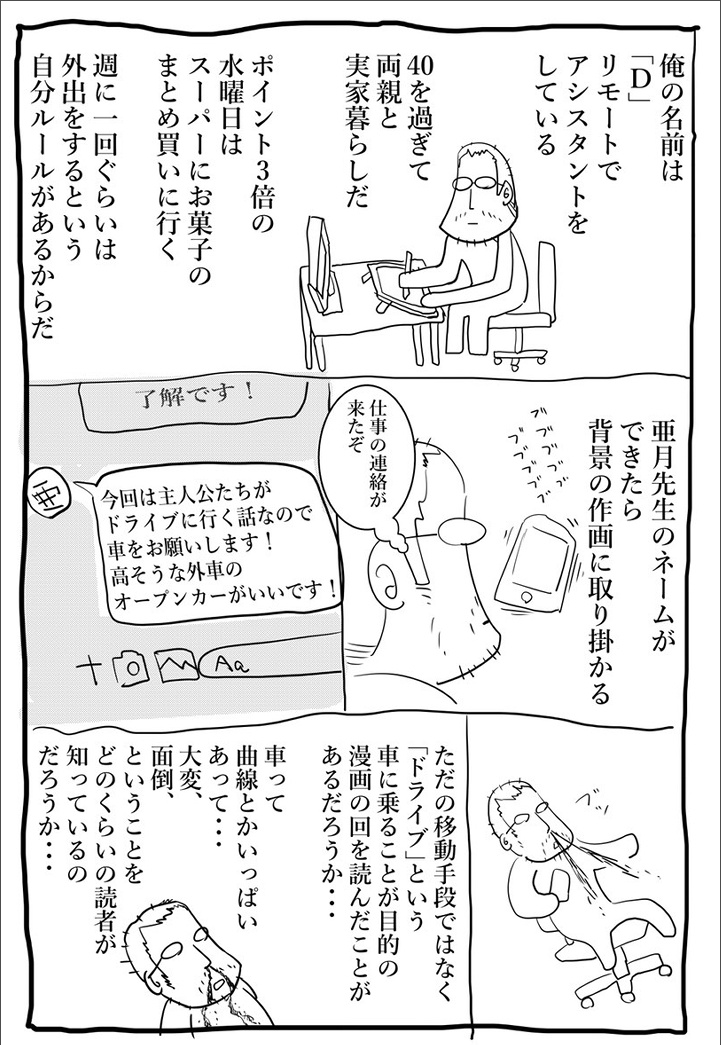 俺の名前は
「D」
リモートで
アシスタントを
している
40を過ぎて
両親と
実家暮らしだ
ポイント3倍の
水曜日は
スーパーにお菓子の
まとめ買いに行く
週に一回ぐらいは
外出をするという
自分ルールがあるからだ
亜月先生のネームが
できたら
背景の作画に取り掛かる
ブブブブ
ブブブブ
仕事の連絡が
来たぞ
了解です！
亜
今回は主人公たちが
ドライブに行く話なので
車をお願いします！
高そうな外車の
オープンカーがいいです！
Aa
ただの移動手段ではなく
「ドライブ」という
車に乗ることが目的の
漫画の回を読んだことが
あるだろうか・・・
車って
曲線とかいっぱい
あって・・・
大変、
面倒、
ということを
どのくらいの読者が
知っているの
だろうか・・・